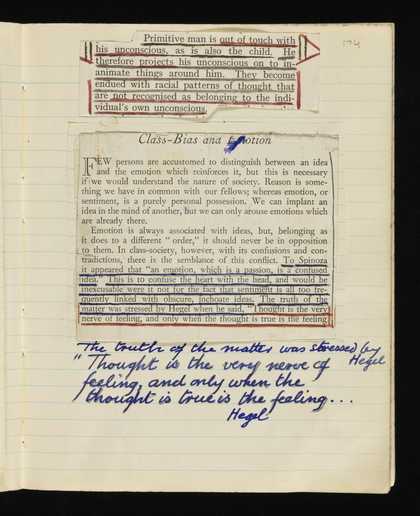 174
Primitive man is out of touch with
his unconscious, as is also the child. He
therefore projects his unconscious on to in-
animate things around him. They become
endued with racial patterns of thought that
are not recognised as belonging to the indi-
vidual's own unconscious.
Class-Bias and Emotion
FEW persons are accustomed to distinguish between an idea
and the emotion which reinforces it, but this is necessary
if we would understand the nature of society. Reason is some-
thing we have in common with our fellows; whereas emotion, or
sentiment, is a purely personal possession. We can implant an
idea in the mind of another, but we can only arouse emotions which
are already there.
Emotion is always associated with ideas, but, belonging as
it does to a different "order," it should never be in opposition
to them. In class-society, however, with its confusions and con-
tradictions, there is the semblance of this conflict. To Spinoza
it appeared that "an emotion, which is a passion, is a confused
idea." This is to confuse the heart with the head, and would be
inexcusable were it not for the fact that sentiment is all too fre-
quently linked with obscure, inchoate ideas. The truth of the
matter was stressed by Hegel when he said, "Thought is the very
nerve of feeling, and only when the thought is true is the feeling
The truth of the matter was stressed by
Hegel
"Thought is the very nerve of
feeling, and only when the
thought is true is the feeling...
Hegel